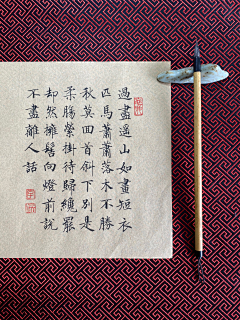 過盡遙山如畫短衣
匹馬蕭蕭落木不勝
秋莫回首斜下別是
柔腸縈掛待歸纔罷
却然擁髻向燈前說
不盡離人話